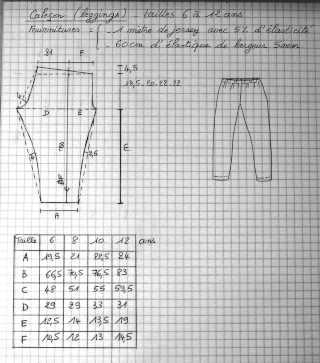 Caleçon (leggings) tailles 6 à 12 ans
Fournitures = - 1 mètre de jersey avec 5% d'élasticité
- 60cm d'élastique de largeur 5mm
21 F
4,5
19,5.20.22.22
D E
B
C
2,5
A
Taille 6 8 10 12 ans
A 19,5 21 22,5 24
B 66,5 70,5 76,5 83
C 48 51 55 59,5
D 29 29 33 31
E 12,5 14 13,5 19
F 10,5 12 13 14,5